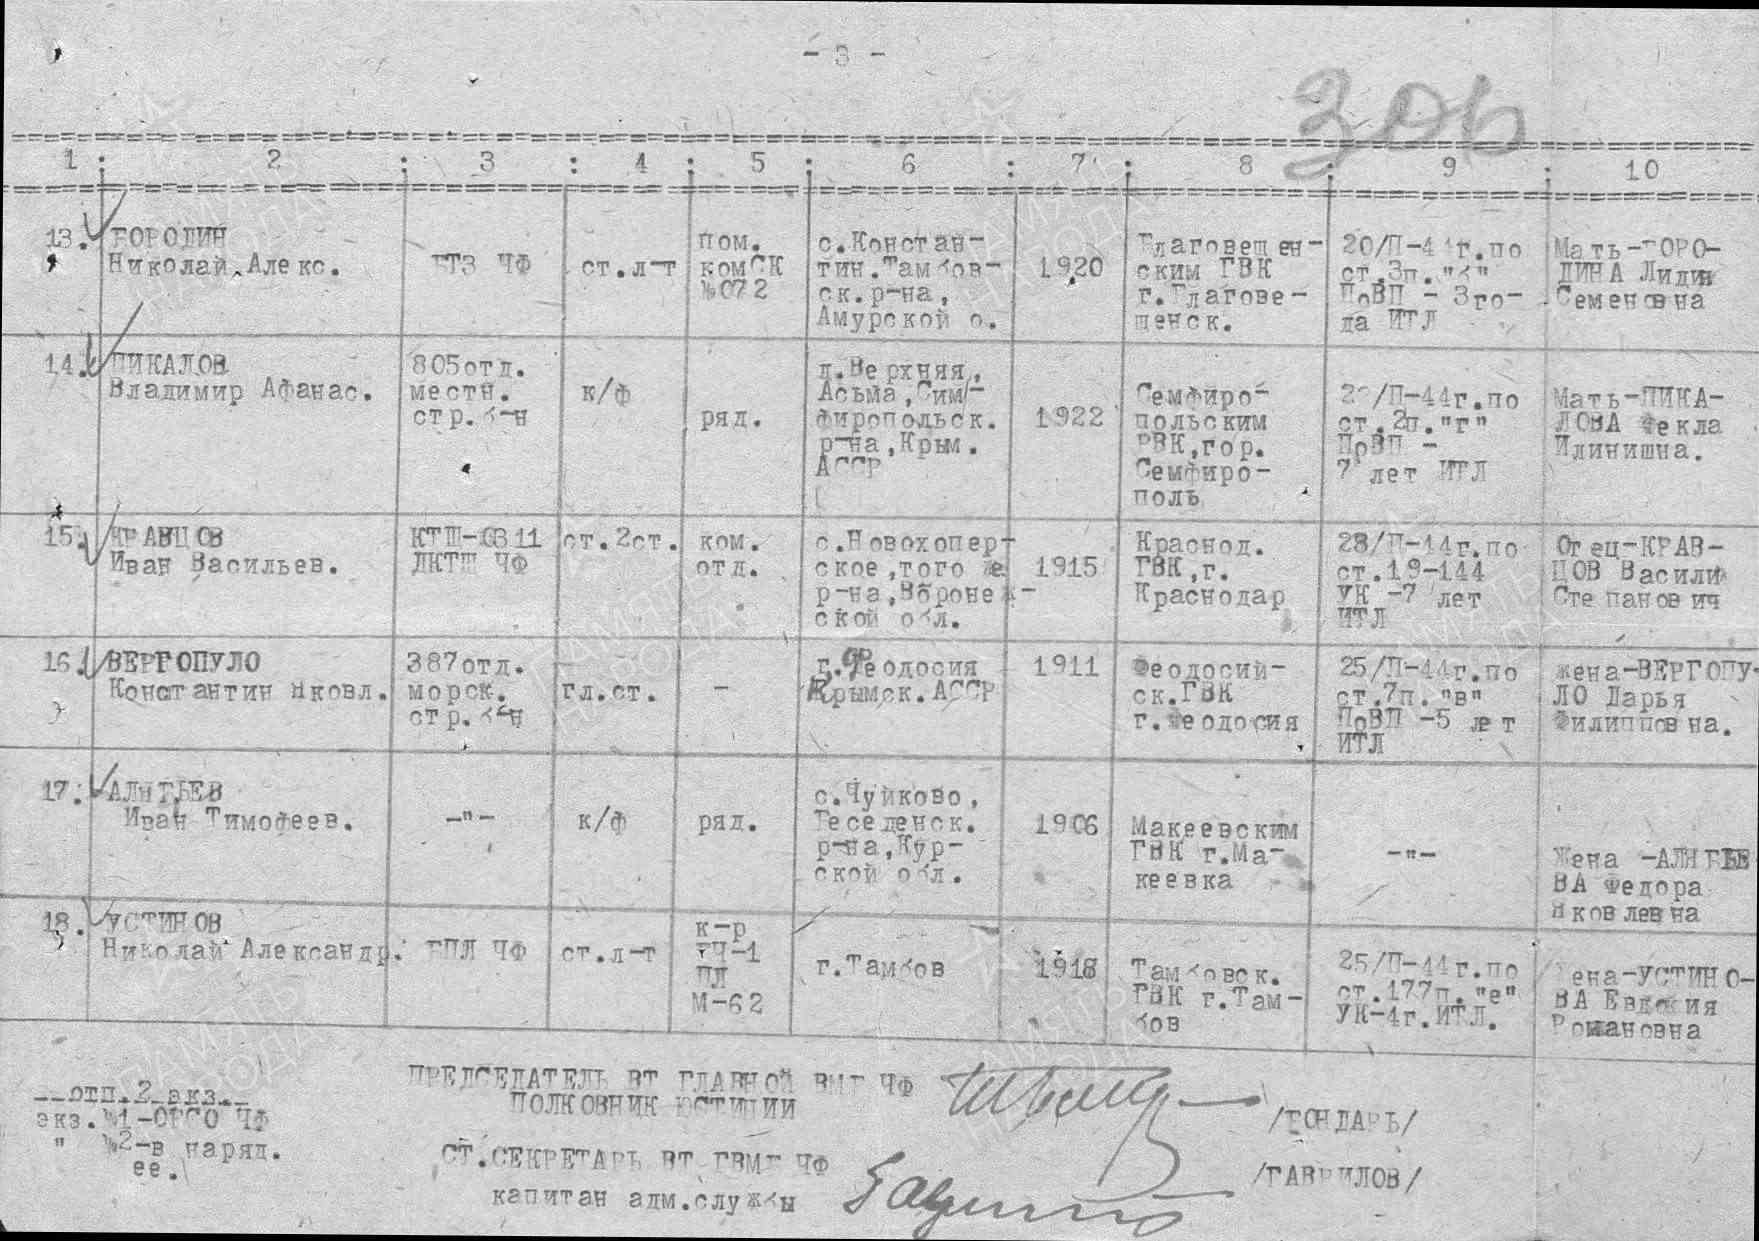 - 3 -
306
1 : 2 : 3 : 4 : 5 : 6 : 7 : 8 : 9 : 10
13. БОРОДИН
Николай Алекс.
БТЗ ЧФ
ст.л-т
пом.
комСК
№072
с.Констан-
тин.Тамбов-
ск.р-на,
Амурской о.
1920
Благовещен-
ским ГВК
г.Благове-
щенск.
20/П-44г.по
ст.3п."б"
ПоВП - 3го-
да ИТЛ
Мать-БОРО-
ДИНА Лидия
Семеновна
14. ПИКАЛОВ
Владимир Афанас.
805отд.
местн.
стр.б-н
к/ф
ряд.
д.Верхняя,
Асьма,Сим-
фиропольск.
р-на,Крым.
АССР
1922
Семфиро-
польским
РВК,гор.
Семфиро-
поль
/П-44г.по
ст.2п."г"
ПоВП -
7 лет ИТЛ
Мать-ПИКА-
ЛОВА Фекла
Илинишна.
15. КРАВЦОВ
Иван Васильев.
КТЩ-0311
ДКТЩ ЧФ
ст.2ст.
ком.
отд.
с.Новохопер-
ское,того же
р-на,Воронеж-
ской обл.
1915
Краснод.
ГВК,г.
Краснодар
23/П-44г.по
ст.19-144
УК -7 лет
ИТЛ
Отец-КРАВ-
ЦОВ Василий
Степанович
16. ВЕРГОПУЛО
Константин Яковл.
387отд.
морск.
стр.б-н
гл.ст.
-
г.Феодосия
Крымск.АССР
1911
Феодосий-
ск.ГВК
г.Феодосия
25/П-44г.по
ст.7п."в"
ПоВП -5 лет
ИТЛ
жена-ВЕРГОПУ-
ЛО Дарья
Филипповна.
17. АЛЯБЬЕВ
Иван Тимофеев.
-"-
к/ф
ряд.
с.Чуйково,
Беседенск.
р-на,Кур-
ской обл.
1906
Макеевским
ГВК г.Ма-
кеевка
-"-
Жена -АЛЯБЬЕ
ВА Федора
Яковлевна
18. УСТИНОВ
Николай Александр.
БПЛ ЧФ
ст.л-т
к-р
БЧ-1
ПЛ
М-62
г.Тамбов
1918
Тамбовск.
ГВК г.Там-
бов
25/П-44г.по
ст.177п."е"
УК-4г.ИТЛ.
Жена-УСТИНО-
ВА Евдокия
Романовна
отп.2 экз.
экз.№1-ОРСО ЧФ
" №2-в наряд.
ее.
ПРЕДСЕДАТЕЛЬ ВТ ГЛАВНОЙ ВМБ ЧФ
ПОЛКОВНИК ЮСТИЦИИ
/БОНДАРЬ/
СТ.СЕКРЕТАРЬ ВТ ГВМБ ЧФ
капитан адм.службы
/ГАВРИЛОВ/